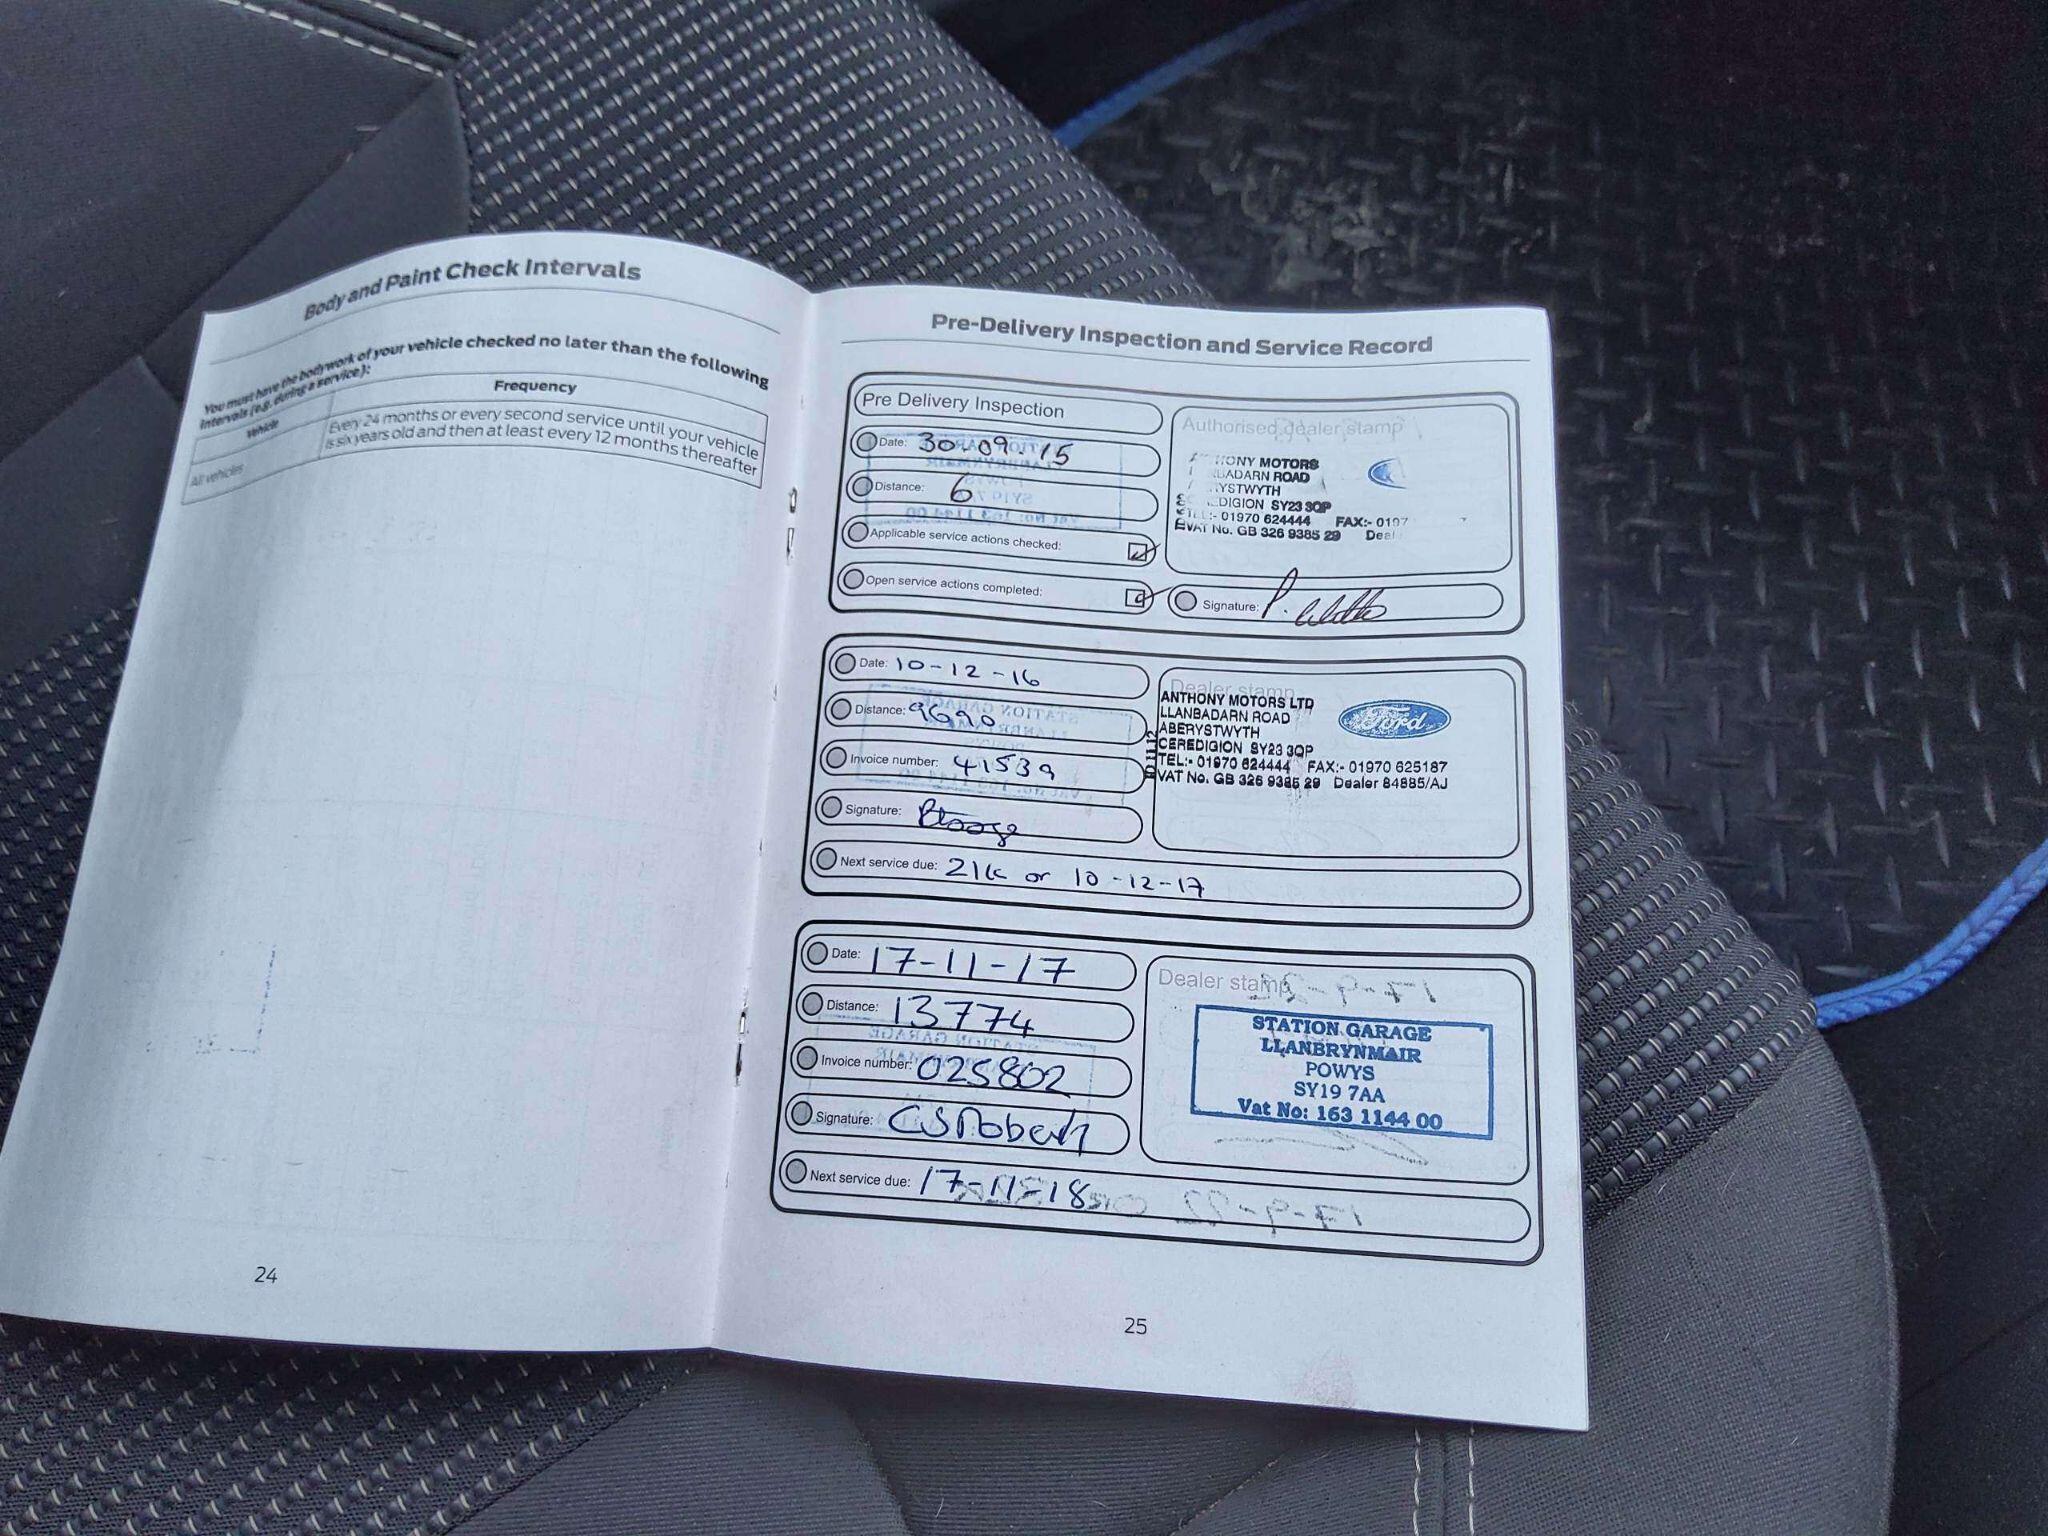 Body and Paint Check Intervals
You must have the bodywork of your vehicle checked no later than the following
intervals (e.g. during a service):
Vehicle
Frequency
All vehicles
Every 24 months or every second service until your vehicle
is six years old and then at least every 12 months thereafter
24
Pre-Delivery Inspection and Service Record
Pre Delivery Inspection
Date: 30-09-15
Distance: 6
Applicable service actions checked:
Open service actions completed:
Authorised dealer stamp
HONY MOTORS
BADARN ROAD
YSTWYTH
DIGION SY23 3QP
TEL:- 01970 624444 FAX:- 0197
VAT No. GB 326 9385 29 Deal
Signature:
Date: 10-12-16
Distance: 9690
Invoice number: 41539
Signature:
Next service due: 21k or 10-12-17
Dealer stamp
ANTHONY MOTORS LTD
LLANBADARN ROAD
ABERYSTWYTH
CEREDIGION SY23 3QP
TEL:- 01970 624444 FAX:- 01970 625187
VAT No. GB 326 9385 29 Dealer 84885/AJ
Ford
Date: 17-11-17
Distance: 13774
Invoice number: 025802
Signature:
Next service due: 17-11-18
Dealer stamp
STATION GARAGE
LLANBRYNMAIR
POWYS
SY19 7AA
Vat No: 163 1144 00
25